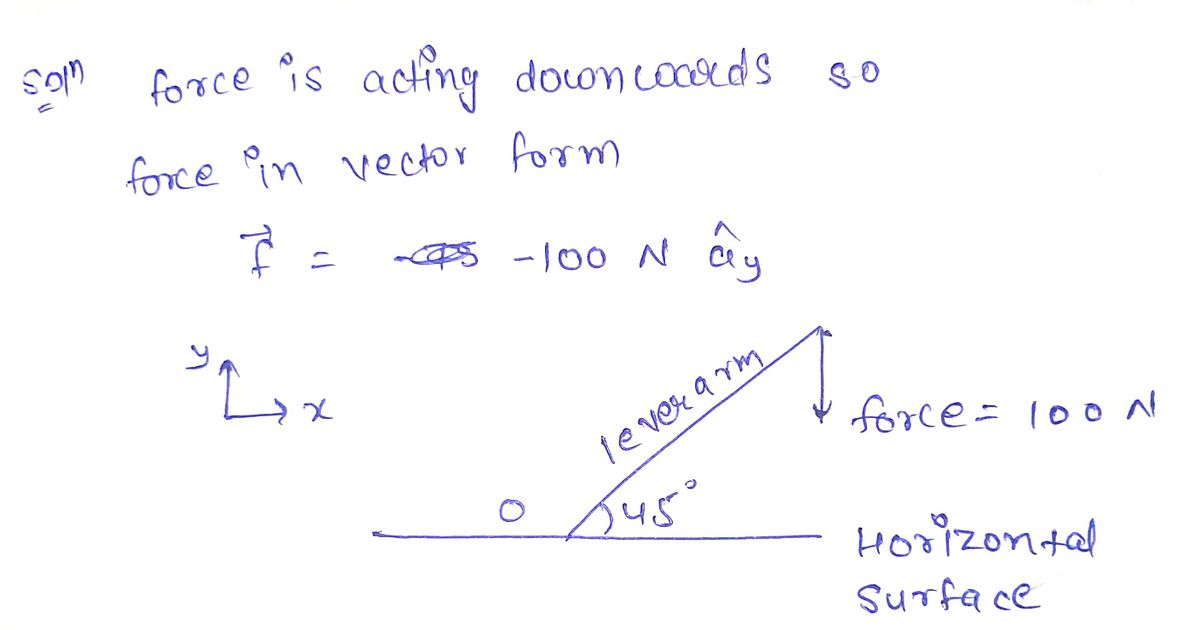 soln force is acting downwards so
force in vector form
f⃗ = -100 N ây
y
x
lever arm
force = 100 N
O
45°
Horizontal
surface